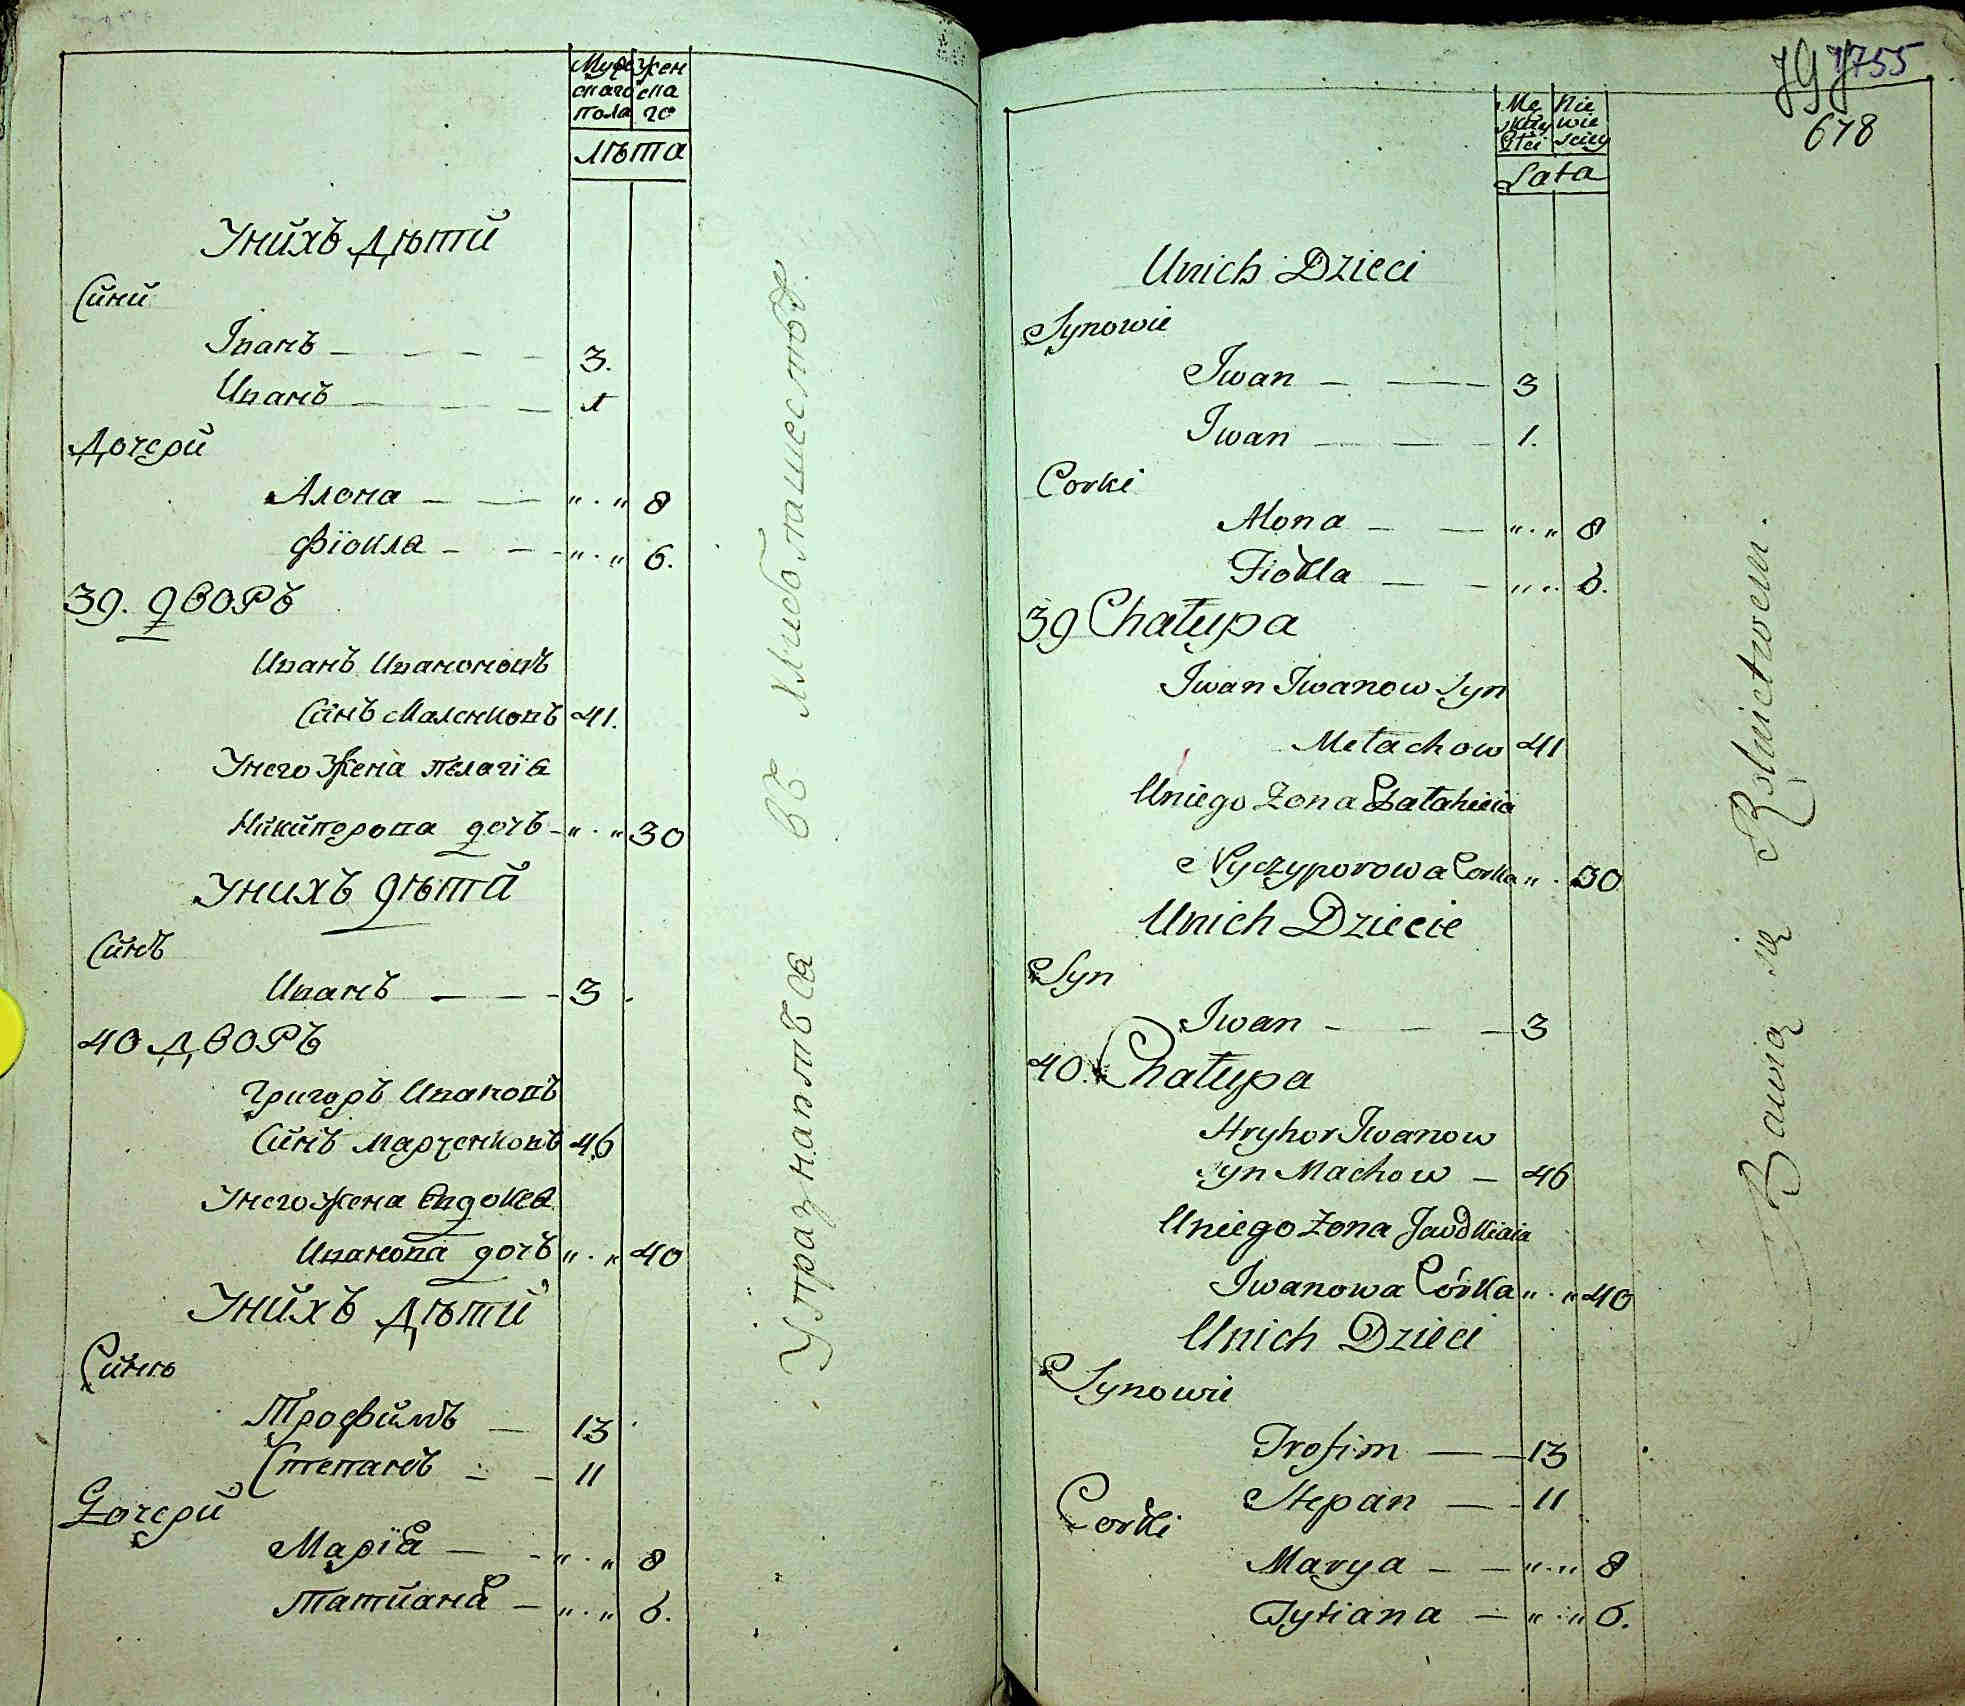 Муж Жен
скаго ска
пола го
лѣта
Унихъ Дѣти
Сини
Іванъ — — — 3.
Иванъ — — — 1
Дочери
Алона — — „ . „ 8
Фіокла — — „ . „ 6.
39. дворъ
Иванъ Ивановъ
Синъ Маленковъ 41.
Унего Жена пелагіа
Никипорова дочь „ . „ 30
Унихъ дѣти
Синъ
Иванъ — — — 3
40 дворъ
Григоръ Ивановъ
Синъ Марченковъ 46
Унего жена Евдокеа
Иванова дочь „ . „ 40
Унихъ Дѣти
Синъ
Трофимъ — 13
Степанъ — — 11
Дочери
Маріа — — „ . „ 8
Татиана — „ . „ 6.
Упражнаютса въ хлибопашествѣ.
1755
678
Mę Nie
skiey wie
Płci sciey
Lata
Unich Dzieci
Synowie
Iwan — — — 3
Iwan — — — 1.
Corki
Alona — — „ . „ 8
Fiokla — — „ . . 6.
39 Chałupa
Iwan Iwanow Syn
Metachow 41
Uniego Zona Pałahieia
Nyczyporowa Corka „ . 30
Unich Dziecie
Syn
Iwan — — — 3
40. Chałupa
Hryhor Iwanow
Syn Machow — 46
Uniego Zona Jawdkieia
Iwanowa Córka „ . „ 40
Unich Dzieci
Synowie
Trofim — — 13
Stepan — — 11
Corki
Marya — — „ . „ 8
Tytiana — „ . „ 6.
Bawią się Rolnictwem.